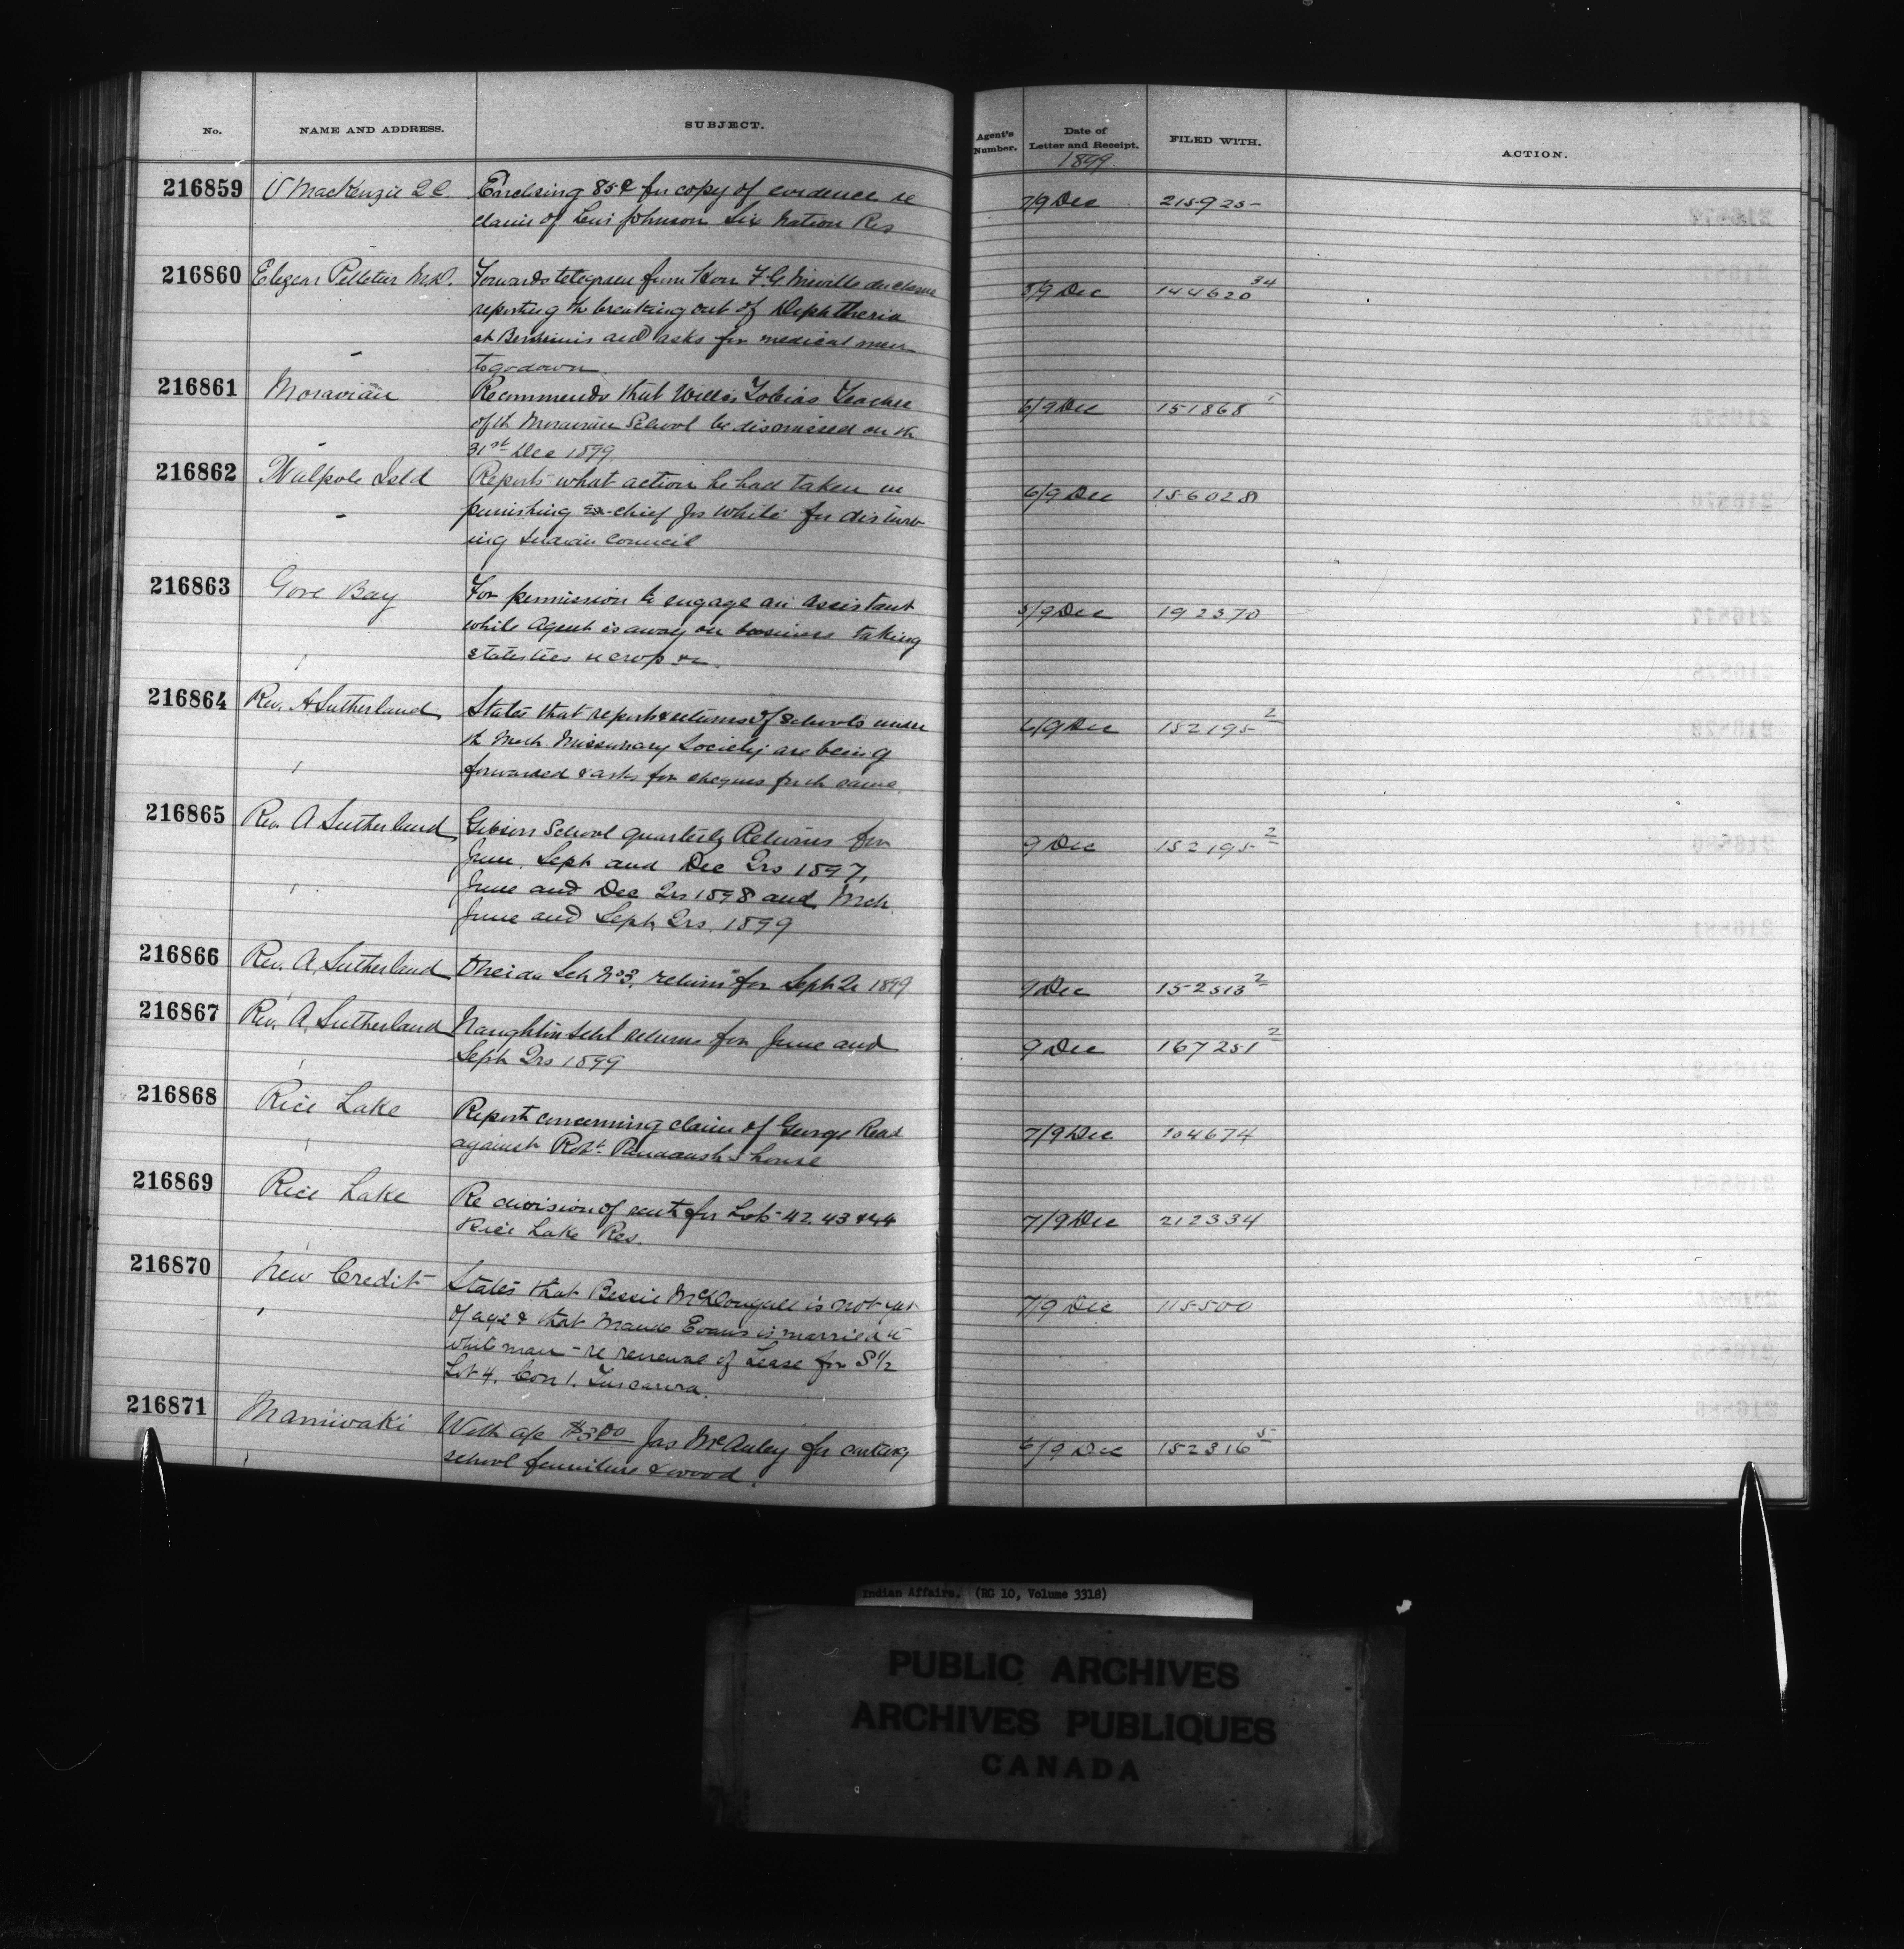 No. NAME AND ADDRESS. SUBJECT. Agent's Number. Date of Letter and Receipt. FILED WITH. ACTION.
1899
216859 V MacKenzie Q C. Enclosing 85¢ for copy of evidence re 7/9 Dec 215925
claim of Levi Johnson Six Nation Res
216860 Elzear Pelletier M.D. Forwards telegram from Hon F. G. 5/9 Dec 144620 34
reporting the breaking out of Diphtheria
at Bersimis and asks for medical man
to go down
216861 Moravian Recommends that Willis Tobias Teacher 6/9 Dec 151868 1
of the Moravian School be dismissed on the
31st Dec 1899
216862 Walpole Isld Reports what action he had taken in 6/9 Dec 156028
punishing ex-chief Jos White for disturb-
ing Indian Council
216863 Gore Bay For permission to engage an assistant 5/9 Dec 192370
while Agent is away on business taking
statistics re crop &c.
216864 Rev. A Sutherland States that reports & returns of schools under 6/9 Dec 152195 2
th Meth Missionary Society are being
forwarded & asks for cheques for th same.
216865 Rev. A Sutherland Gibson School quarterly Returns for 9 Dec 152195 2
June, Sept and Dec Qrs 1897,
June and Dec Qrs 1898 and Mch
June and Sept Qrs. 1899
216866 Rev. A. Sutherland Oneida Sch No 3. returns for Sept Qr 1899 9 Dec 152513 2
216867 Rev. A. Sutherland Naughton Schl returns for June and 9 Dec 167251 2
Sept Qrs 1899
216868 Rice Lake Report concerning claim of George Read 7/9 Dec 104674
against Robt. Paudaush's house
216869 Rice Lake Re division of rent for Lots 42, 43 & 44 7/9 Dec 212334
Rice Lake Res.
216870 New Credit States that Bessie McDougall is not yet 7/9 Dec 115500
of age & that Maude Evans is married to
white man - re renewal of Lease for S 1/2
Lot 4, Con 1. Tuscarora.
216871 Maniwaki With a/c $3.00 Jas McAuley for carting 6/9 Dec 152316 5
school furniture & wood.
Indian Affairs. (RG 10, Volume 3318)
PUBLIC ARCHIVES
ARCHIVES PUBLIQUES
CANADA